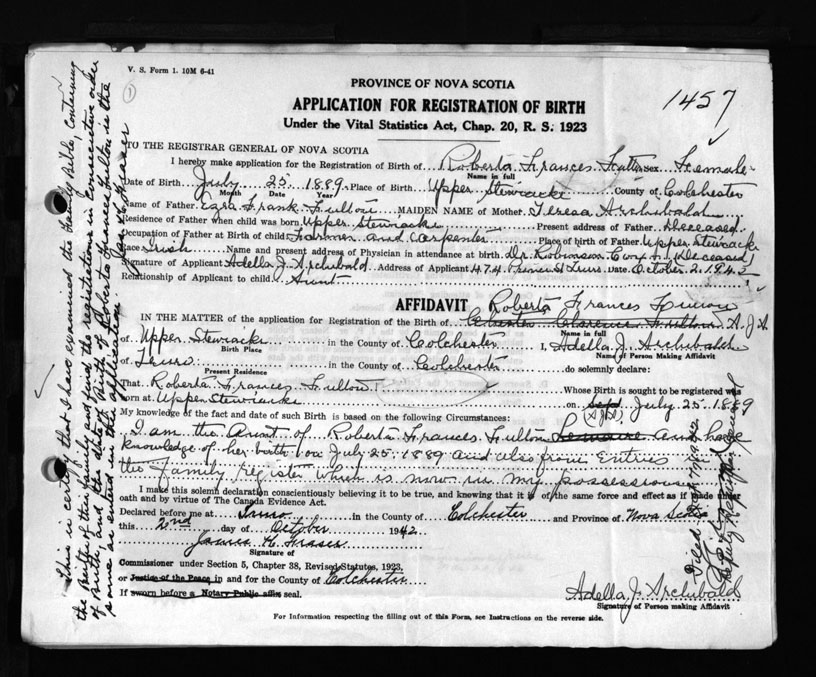 V. S. Form 1. 10M 6-41
1
1457
PROVINCE OF NOVA SCOTIA
APPLICATION FOR REGISTRATION OF BIRTH
Under the Vital Statistics Act, Chap. 20, R. S. 1923
TO THE REGISTRAR GENERAL OF NOVA SCOTIA
I hereby make application for the Registration of Birth of Roberta Frances Fulton Sex Female
Name in full
Date of Birth July 25 1889 Place of Birth Upper Stewiacke County of Colchester
Month Date Year
Name of Father Ezra Frank Fulton MAIDEN NAME of Mother Teresa Archibald
Residence of Father when child was born Upper Stewiacke Present address of Father Deceased
Occupation of Father at Birth of child Farmer and Carpenter Place of birth of Father Upper Stewiacke
Race Irish Name and present address of Physician in attendance at birth Dr. Robinson Cox (Deceased)
Signature of Applicant Adella J. Archibald Address of Applicant 474 Prince St Truro Date October 2. 194
Relationship of Applicant to child Aunt
AFFIDAVIT Roberta Frances Fulton
IN THE MATTER of the application for Registration of the Birth of Clarence Fulton A. J. A.
Name in full
of Upper Stewiacke in the County of Colchester I, Adella J. Archibald
Birth Place Name of Person Making Affidavit
of Truro in the County of Colchester do solemnly declare:
Present Residence
That Roberta Frances Fulton Whose Birth is sought to be registered was
born at Upper Stewiacke on July 25. 1889
My knowledge of the fact and date of such Birth is based on the following Circumstances:
I am the Aunt of Roberta Frances Fulton and have
knowledge of her birth on July 25. 1889 and also from Entries in
the family register which is now in my possession
I make this solemn declaration conscientiously believing it to be true, and knowing that it is of the same force and effect as if made under
oath and by virtue of The Canada Evidence Act.
Declared before me at Truro in the County of Colchester and Province of Nova Scotia
this 2nd day of October 1942
James K. Fraser
Signature of
Commissioner under Section 5, Chapter 38, Revised Statutes, 1923,
or Justice of the Peace in and for the County of Colchester
If sworn before a Notary Public affix seal.
Adella J. Archibald
Signature of Person making Affidavit
For Information respecting the filling out of this Form, see Instructions on the reverse side.
This is certify that I have examined the Family Bible, containing
the Births of this family and find the registrations in Consecutive order
of birth, and the date of birth of Roberta Frances Fulton is the
same as entered in the
Deputy Registrar General